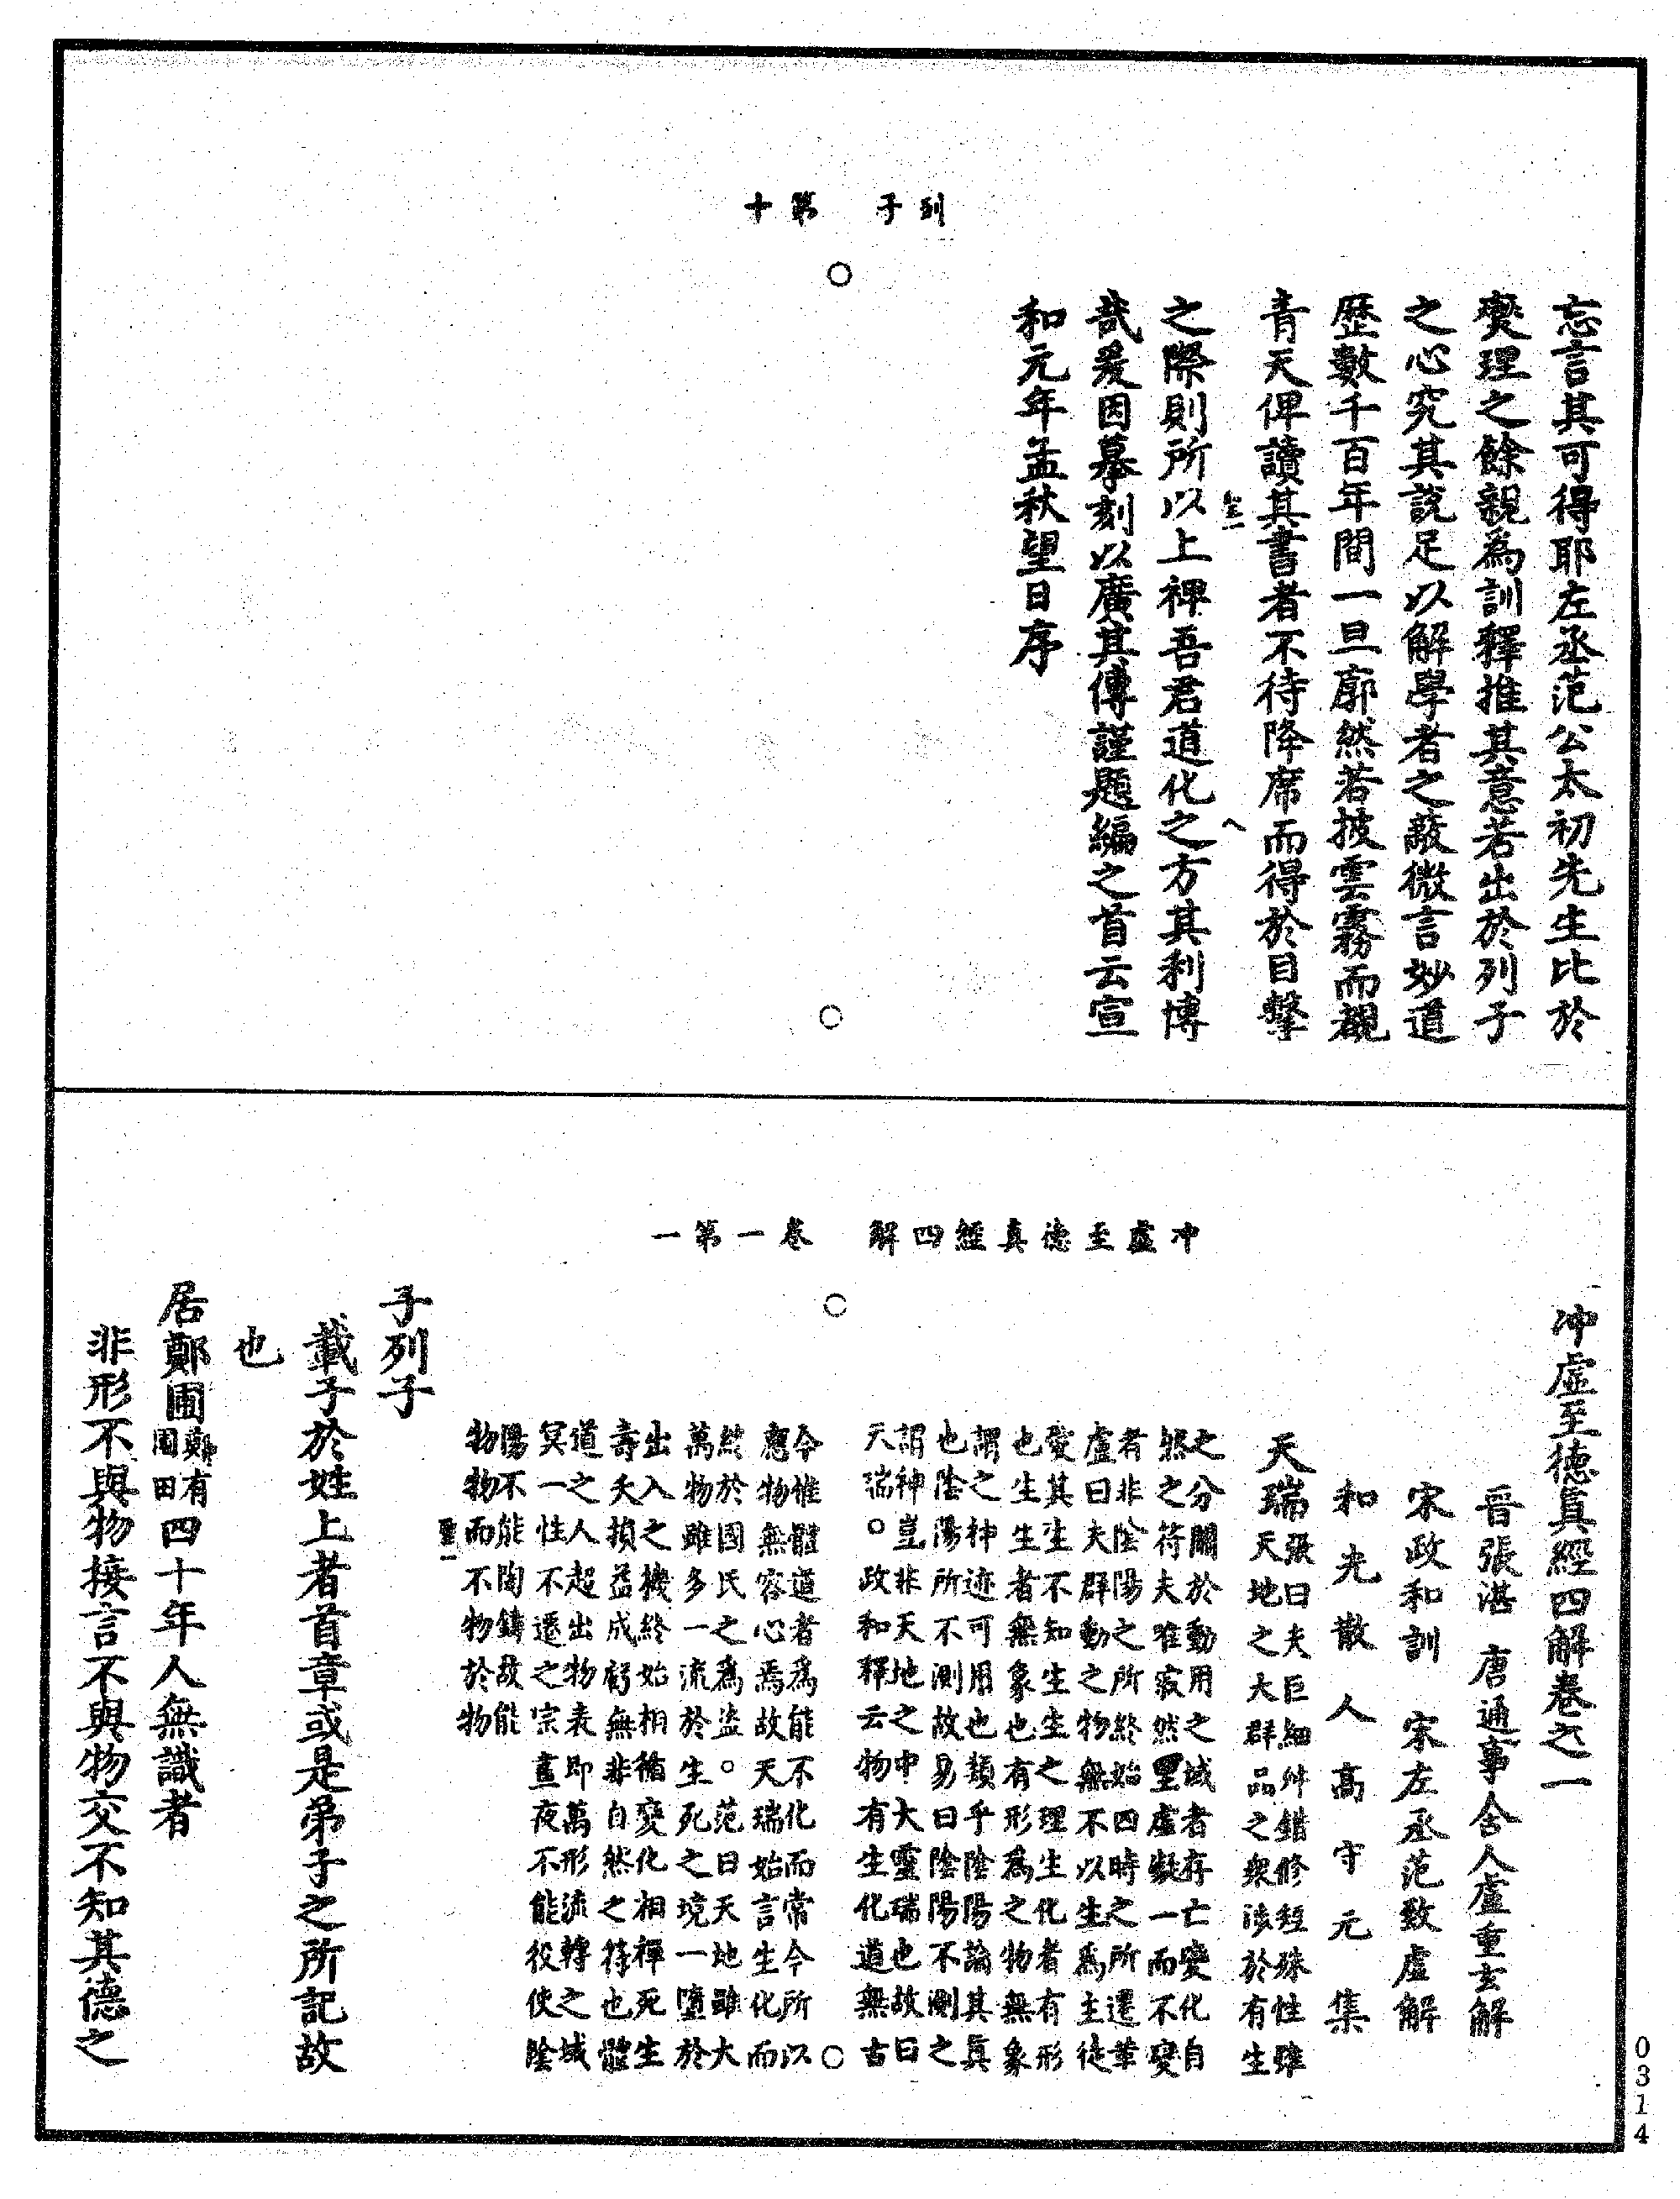 列子　第十
忘言其可得耶左丞范公太初先生比於
爕理之餘親為訓釋推其意若出於列子
之心究其說足以解學者之蔽微言妙道
歷數千百年間一旦廓然若披雲霧而覩
青天俾讀其書者不待降席而得於目擊
之際則所以上裨吾君道化之方其利博
哉爰因摹刻以廣其傳謹題編之首云宣
和元年孟秋望日序
冲虛至德真經四解　卷一第一
冲虛至德真經四解卷之一
晉張湛　唐通事舍人盧重玄解
宋政和訓　宋左丞范致虛解
和光散人高守元集
天瑞張曰夫巨細舛錯修短殊性雖
天地之大群品之衆涉於有生
之分關於動用之域者存亡變化自
然之符夫唯寂然至虛凝一而不變
者非陰陽之所終始四時之所遷革
盧曰夫群動之物無不以生為主徒
愛其生不知生生之理生化者有形
也生生者無象也有形為之物無象
謂之神迹可用也類乎陰陽論其真
也陰陽所不測故易曰陰陽不測之
謂神豈非天地之中大靈瑞也故曰
天瑞。政和釋云物有生化道無古
今惟體道者為能不化而常今所以
應物無容心焉故天瑞始言生化而
終於國氏之為盜。范曰天地雖大
萬物雖多一流於生死之境一墮於
出入之機終始相循變化相禪死生
壽夭損益成虧無非自然之符也體
道之人超出物表即萬形流轉之域
冥一性不遷之宗晝夜不能役使陰
陽不能陶鑄故能
物物而不物於物
子列子
載子於姓上者首章或是弟子之所記故
也
居鄭圃鄭有圃田四十年人無識者
非形不與物接言不與物交不知其德之
0314